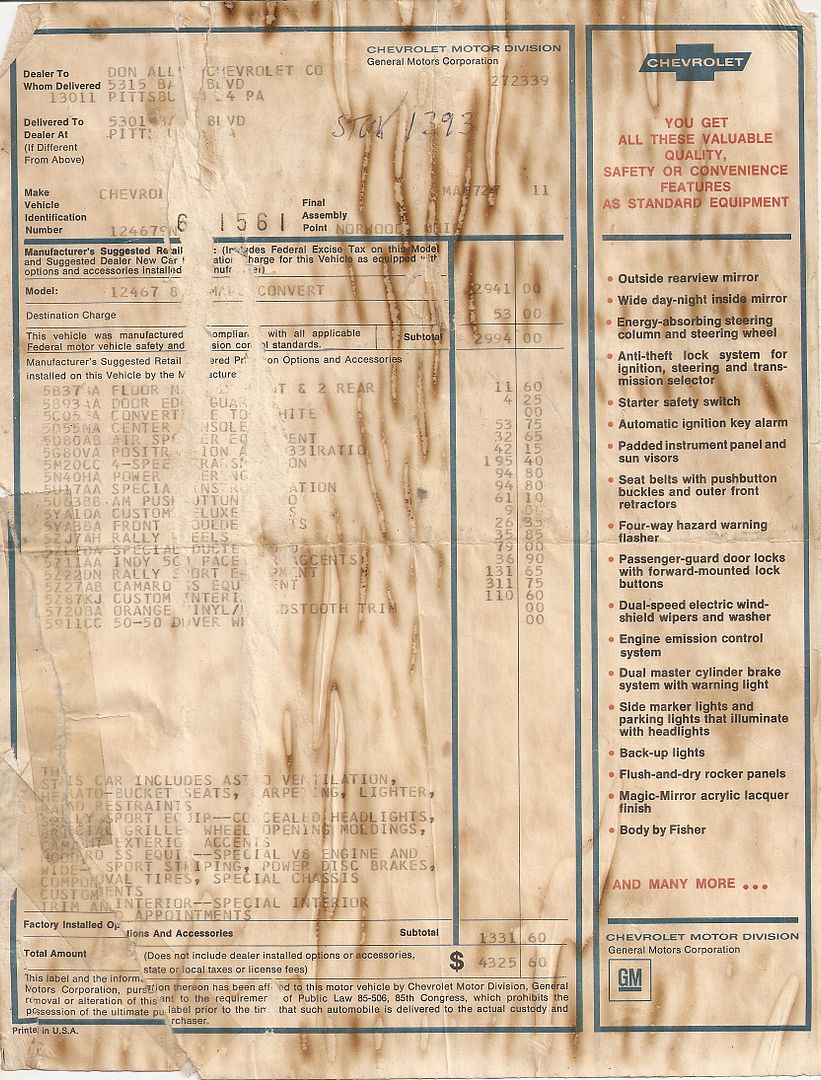 CHEVROLET MOTOR DIVISION
General Motors Corporation
Dealer To
Whom Delivered
DON ALL CHEVROLET CO
5315 BA BLVD
13011 PITTSBU 4 PA
272339
Delivered To
Dealer At
(If Different
From Above)
5301 BLVD
PITT
STOCK 1393
Make
CHEVROL
Vehicle
Identification
Number
124679N
6 1561
Final
Assembly
Point
NORWOOD, OHI
11
Manufacturer's Suggested Retail (Includes Federal Excise Tax on this Model
and Suggested Dealer New Car charge for this Vehicle as equipped with
options and accessories installed
Model: 12467 8 CONVERT 2941 00
Destination Charge 53 00
This vehicle was manufactured complian with all applicable
Federal motor vehicle safety and sion control standards.
Subtotal 2994 00
Manufacturer's Suggested Retail ered Pri on Options and Accessories
installed on this Vehicle by the M acture
5B37 A FLOOR M T & 2 REAR 11 60
5B93 A DOOR ED GUA 4 25
5C05 A CONVERT E TO HITE 00
5D55NA CENTER NSOLE 53 75
5D80AB AIR SP ER EQ ENT 32 65
5G80VA POSITR ION A 331RATIO 42 15
5M20CC 4-SPEE RANSM ON 195 40
5N40HA POWER ERING 94 80
5U17AA SPECIA INSTR ATION 94 80
5U63BB AM PUSH UTTON O 61 10
5YA1DA CUSTOM ELUXE S 9 00
5YA3BA FRONT OULDE TS 26 35
5ZJ7AH RALLY EELS 35 85
SPECIAL DUCTE 79 00
5Z11AA INDY 500 PACE ACCENTS 36 90
5Z22DN RALLY SPORT E MENT 131 65
5Z27AB CAMARO SS EQU ENT 311 75
5Z87KJ CUSTOM INTERI 110 60
5720BA ORANGE VINYL/ DSTOOTH TRIM 00
5911CC 50-50 D VER W 00
TH
ST IS CAR INCLUDES AST O VENTILATION,
HE RATO-BUCKET SEATS, CARPETING, LIGHTER,
AD RESTRAINTS
LLY SPORT EQUIP--CONCEALED HEADLIGHTS,
CIAL GRILLE, WHEEL OPENING MOLDINGS,
EXTERIO ACCENTS
RO SS EQUI --SPECIAL V8 ENGINE AND
SPORT STRIPING, POWER DISC BRAKES,
WIDE OVAL TIRES, SPECIAL CHASSIS
COMPONENTS
CUSTOM
TRIM AN INTERIOR--SPECIAL INTERIOR
D APPOINTMENTS
Factory Installed Options And Accessories Subtotal 1331 60
Total Amount
(Does not include dealer installed options or accessories,
state or local taxes or license fees)
$ 4325 60
This label and the informa tion thereon has been aff ed to this motor vehicle by Chevrolet Motor Division, General
Motors Corporation, pursu ant to the requiremen of Public Law 85-506, 85th Congress, which prohibits the
removal or alteration of this label prior to the tim that such automobile is delivered to the actual custody and
possession of the ultimate purchaser.
Printed in U.S.A.
CHEVROLET
YOU GET
ALL THESE VALUABLE
QUALITY,
SAFETY OR CONVENIENCE
FEATURES
AS STANDARD EQUIPMENT
• Outside rearview mirror
• Wide day-night inside mirror
• Energy-absorbing steering
column and steering wheel
• Anti-theft lock system for
ignition, steering and trans-
mission selector
• Starter safety switch
• Automatic ignition key alarm
• Padded instrument panel and
sun visors
• Seat belts with pushbutton
buckles and outer front
retractors
• Four-way hazard warning
flasher
• Passenger-guard door locks
with forward-mounted lock
buttons
• Dual-speed electric wind-
shield wipers and washer
• Engine emission control
system
• Dual master cylinder brake
system with warning light
• Side marker lights and
parking lights that illuminate
with headlights
• Back-up lights
• Flush-and-dry rocker panels
• Magic-Mirror acrylic lacquer
finish
• Body by Fisher
AND MANY MORE ...
CHEVROLET MOTOR DIVISION
General Motors Corporation
GM